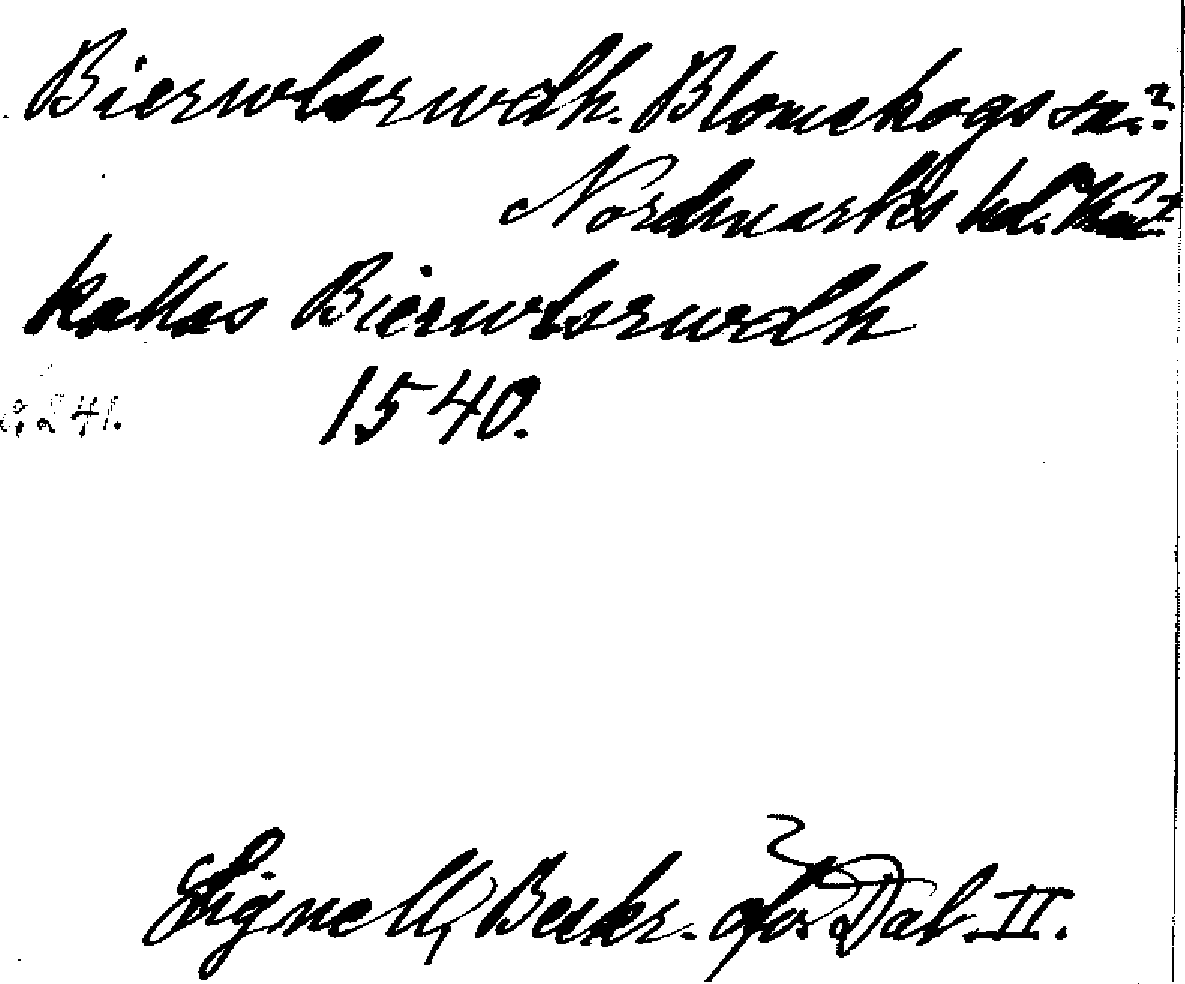 Bierwlsrwdh. Blomskogs sn.?
Nordmarks hd.
kallas Bierwlsrwdh
1540.
Lignell, Beskr. öfv. Dal. II.